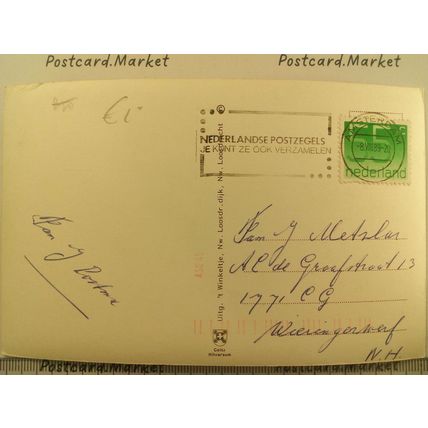 Postcard.Market
Postcard.Market
€1-
NEDERLANDSE POSTZEGELS
JE KUNT ZE OOK VERZAMELEN
AMSTERDAM
-8.VIII.89-20
nederland
Fam J Postma
©
Uitg. 't Winkeltje, Nw. Loosdr. dijk, Nw. Loosdrecht
Fam J Metselar
A C de Graafstraat 13
1771 C G
Wieringerwerf
N.H.
Gelto
Hilversum
Postcard.Market
Postcard.Market